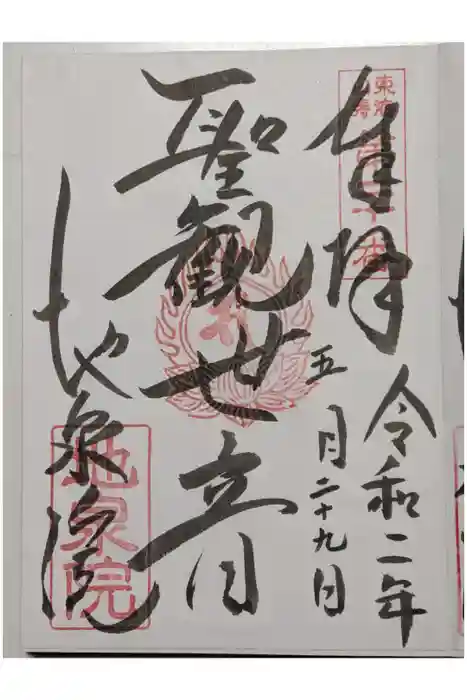 東海
白寿
奉拝
令和二年
五月二十九日
聖観世音
地泉院
地泉院